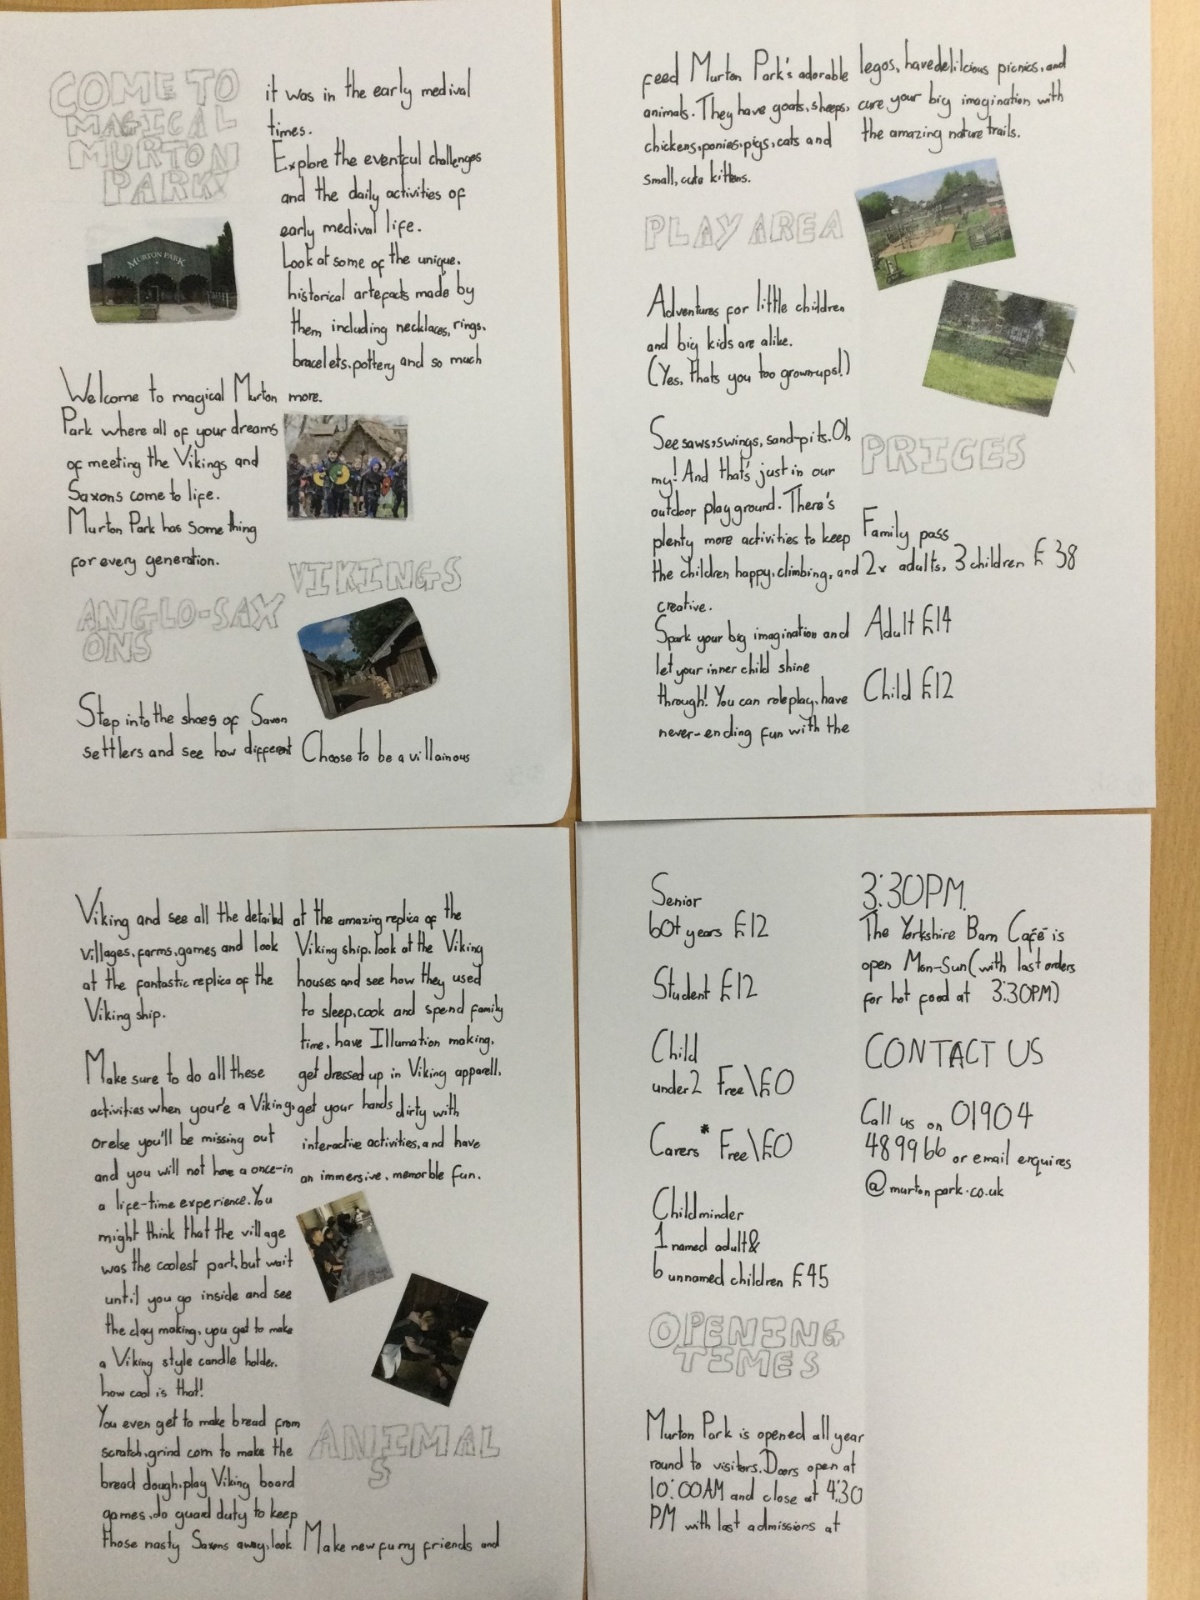 COME TO
MAGICAL
MURTON
PARK!
MURTON PARK
Welcome to magical Murton
Park where all of your dreams
of meeting the Vikings and
Saxons come to life.
Murton Park has something
for every generation.
ANGLO-SAX
ONS
Step into the shoes of Saxon
settlers and see how different
it was in the early medival
times.
Explore the eventful challenges
and the daily activities of
early medival life.
Look at some of the unique,
historical artefacts made by
them including necklaces, rings,
bracelets, pottery, and so much
more.
VIKINGS
Choose to be a villainous
Viking and see all the detailed
villages, farms, games and look
at the fantastic replica of the
Viking ship.
Make sure to do all these
activities when your'e a Viking,
orelse you'll be missing out
and you will not have a once-in
a life-time experience. You
might think that the village
was the coolest part, but wait
until you go inside and see
the clay making, you get to make
a Viking style candle holder,
how cool is that!
You even get to make bread from
scratch, grind corn to make the
bread dough, play Viking board
games, do guard duty to keep
those nasty Saxons away, look
at the amazing replica of the
Viking ship, look at the Viking
houses and see how they used
to sleep, cook and spend family
time, have Illumation making,
get dressed up in Viking apparell,
get your hands dirty with
interactive activities, and have
an immersive, memorble fun.
ANIMAL
S
Make new furry friends and
feed Murton Park's adorable
animals. They have goats, sheeps,
chickens, ponies, pigs, cats and
small, cute kittens.
PLAY AREA
Adventures for little children
and big kids are alike.
(Yes, thats you too grown-ups!)
See saws, swings, sand-pits. Oh
my! And that's just in our
outdoor playground. There's
plenty more activities to keep
the children happy, climbing, and
creative.
Spark your big imagination and
let your inner child shine
through! You can roleplay, have
never-ending fun with the
legos, have delilcious picnics, and
cure your big imagination with
the amazing nature trails.
PRICES
Family pass
2x adults, 3 children £38
Adult £14
Child £12
Senior
60+ years £12
Student £12
Child
under 2 Free\£0
Carers* Free\£0
Childminder
1 named adult&
6 unnamed children £45
OPENING
TIMES
Murton Park is opened all year
round to visitors. Doors open at
10:00AM and close at 4:30
PM with last admissions at
3:30PM.
The Yorkshire Barn Café is
open Mon-Sun (with last orders
for hot food at 3:30PM)
CONTACT US
Call us on 01904
489966 or email enquires
@murtonpark.co.uk